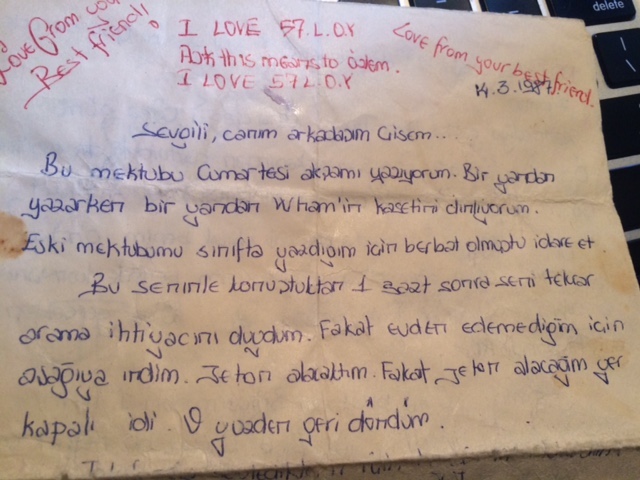 Love from your
Best friend!
I LOVE 57.L.O.Y
Ask this means to Özlem.
I LOVE 57L.O.Y
Love from your best friend.
14.3.1987
Sevgili, canım arkadaşım Çisem...
Bu mektubu Cumartesi akşamı yazıyorum. Bir yandan
yazarken bir yandan Wham'in kasetini dinliyorum.
Eski mektubumu sınıfta yazdığım için berbat olmuştu idare et
Bu seninle konuştuktan 1 saat sonra seni tekrar
arama ihtiyacını duydum. Fakat evden edemediğim için
aşağıya indim. Jeton alacaktım. Fakat Jeton alacağım yer
kapalı idi. O yüzden geri döndüm.